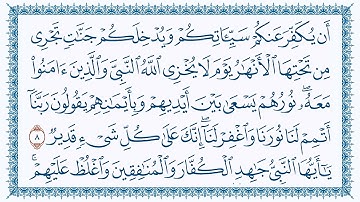 أَن يُكَفِّرَ عَنكُمْ سَيِّـَٔاتِكُمْ وَيُدْخِلَكُمْ جَنَّٰتٍ تَجْرِى
مِن تَحْتِهَا ٱلْأَنْهَٰرُ يَوْمَ لَا يُخْزِى ٱللَّهُ ٱلنَّبِىَّ وَٱلَّذِينَ ءَامَنُوا۟
مَعَهُۥ ۖ نُورُهُمْ يَسْعَىٰ بَيْنَ أَيْدِيهِمْ وَبِأَيْمَٰنِهِمْ يَقُولُونَ رَبَّنَآ
أَتْمِمْ لَنَا نُورَنَا وَٱغْفِرْ لَنَآ ۖ إِنَّكَ عَلَىٰ كُلِّ شَىْءٍ قَدِيرٌ ٨
يَٰٓأَيُّهَا ٱلنَّبِىُّ جَٰهِدِ ٱلْكُفَّارَ وَٱلْمُنَٰفِقِينَ وَٱغْلُظْ عَلَيْهِمْ ۚ